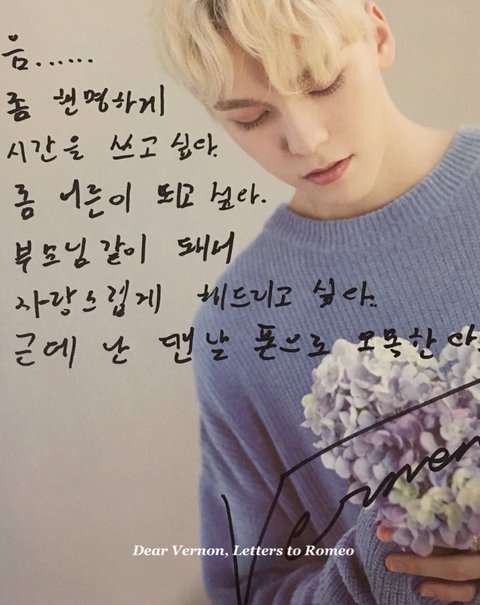 음......
좀 현명하게
시간을 쓰고 싶다.
좀 어른이 되고 싶다.
부모님 같이 돼서
자랑스럽게 해드리고 싶다.
근데 난 맨날 폰으로 오목한다.
Vernon
Dear Vernon, Letters to Romeo